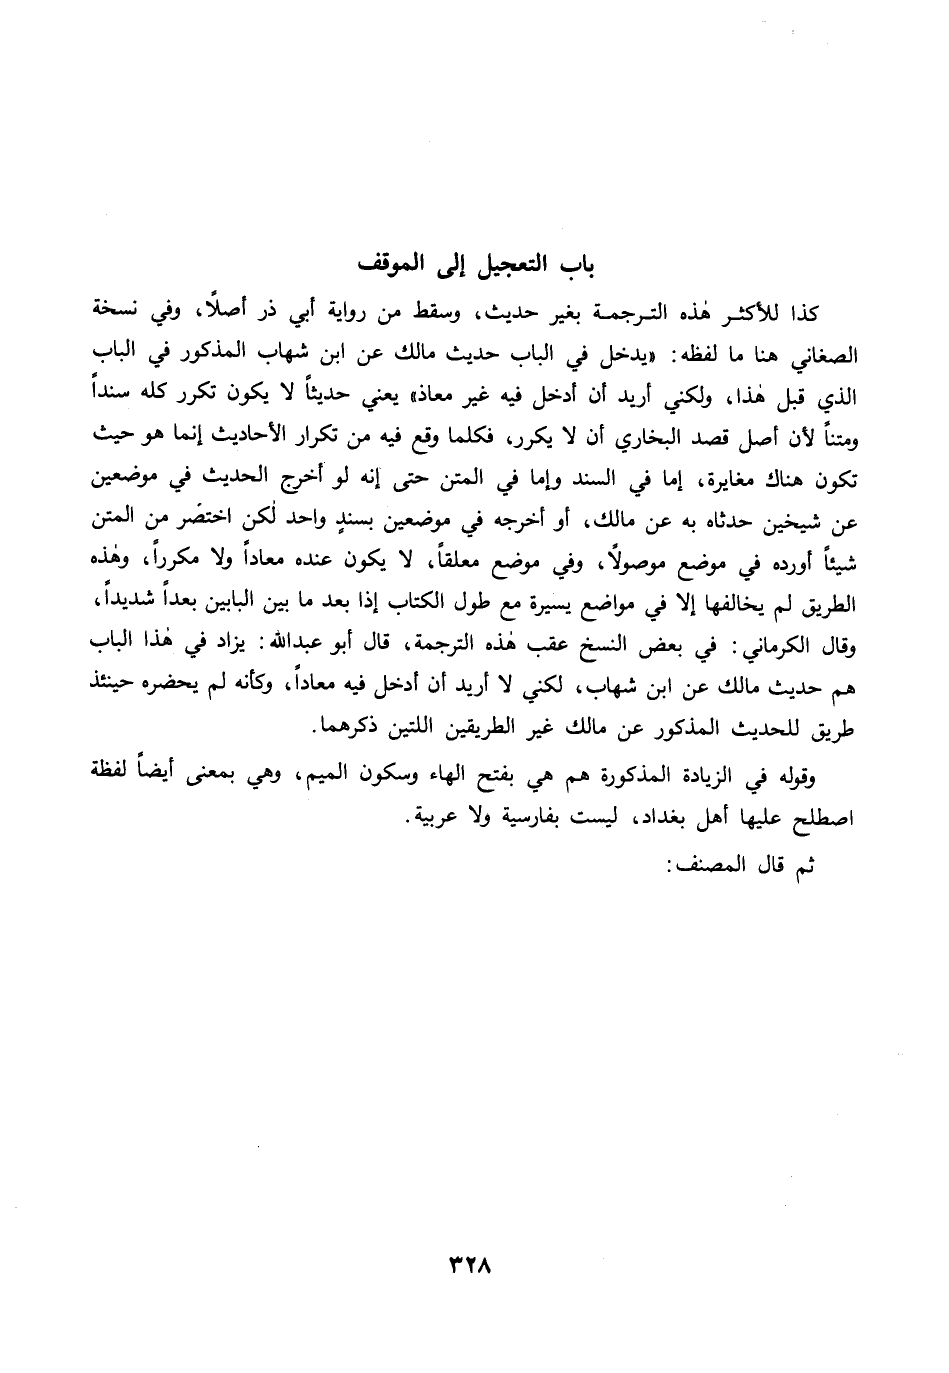 باب التعجيل إلى الموقف
كذا للأكثر هٰذه الترجمة بغير حديث، وسقط من رواية أبي ذر أصلًا، وفي نسخة
الصغاني هنا ما لفظه: «يدخل في الباب حديث مالك عن ابن شهاب المذكور في الباب
الذي قبل هٰذا، ولكني أريد أن أدخل فيه غير معاذ» يعني حديثاً لا يكون تكرر كله سنداً
ومتناً لأن أصل قصد البخاري أن لا يكرر، فكلما وقع فيه من تكرار الأحاديث إنما هو حيث
تكون هناك مغايرة، إما في السند وإما في المتن حتى إنه لو أخرج الحديث في موضعين
عن شيخين حدثاه به عن مالك، أو أخرجه في موضعين بسندٍ واحد لٰكن اختصر من المتن
شيئاً أورده في موضع موصولًا، وفي موضع معلقاً، لا يكون عنده معاداً ولا مكرراً، وهٰذه
الطريق لم يخالفها إلا في مواضع يسيرة مع طول الكتاب إذا بعد ما بين البابين بعداً شديداً،
وقال الكرماني: في بعض النسخ عقب هٰذه الترجمة، قال أبو عبدالله: يزاد في هٰذا الباب
هم حديث مالك عن ابن شهاب، لكني لا أريد أن أدخل فيه معاداً، وكأنه لم يحضره حينئذ
طريق للحديث المذكور عن مالك غير الطريقين اللتين ذكرهما.
وقوله في الزيادة المذكورة هم هي بفتح الهاء وسكون الميم، وهي بمعنى أيضاً لفظة
اصطلح عليها أهل بغداد، ليست بفارسية ولا عربية.
ثم قال المصنف:
٣٢٨